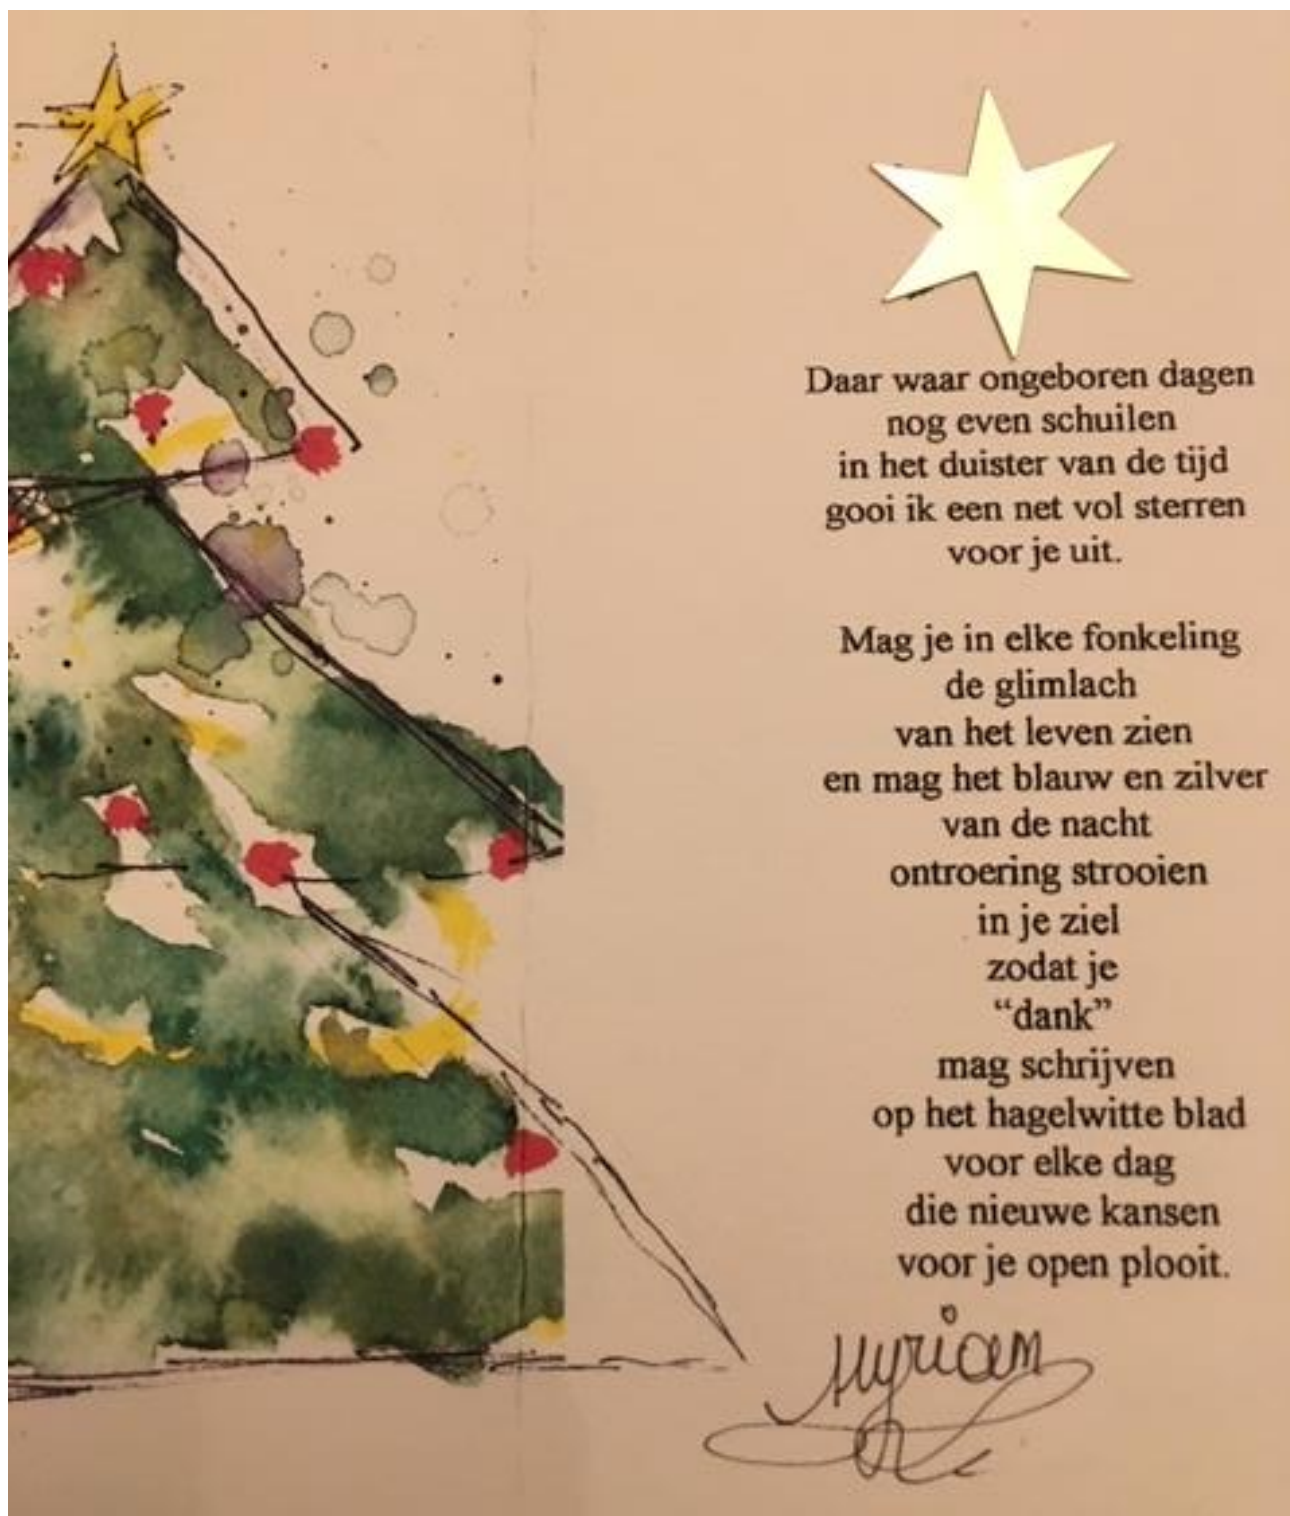 Daar waar ongeboren dagen
nog even schuilen
in het duister van de tijd
gooi ik een net vol sterren
voor je uit.
Mag je in elke fonkeling
de glimlach
van het leven zien
en mag het blauw en zilver
van de nacht
ontroering strooien
in je ziel
zodat je
“dank”
mag schrijven
op het hagelwitte blad
voor elke dag
die nieuwe kansen
voor je open plooit.
Myriam